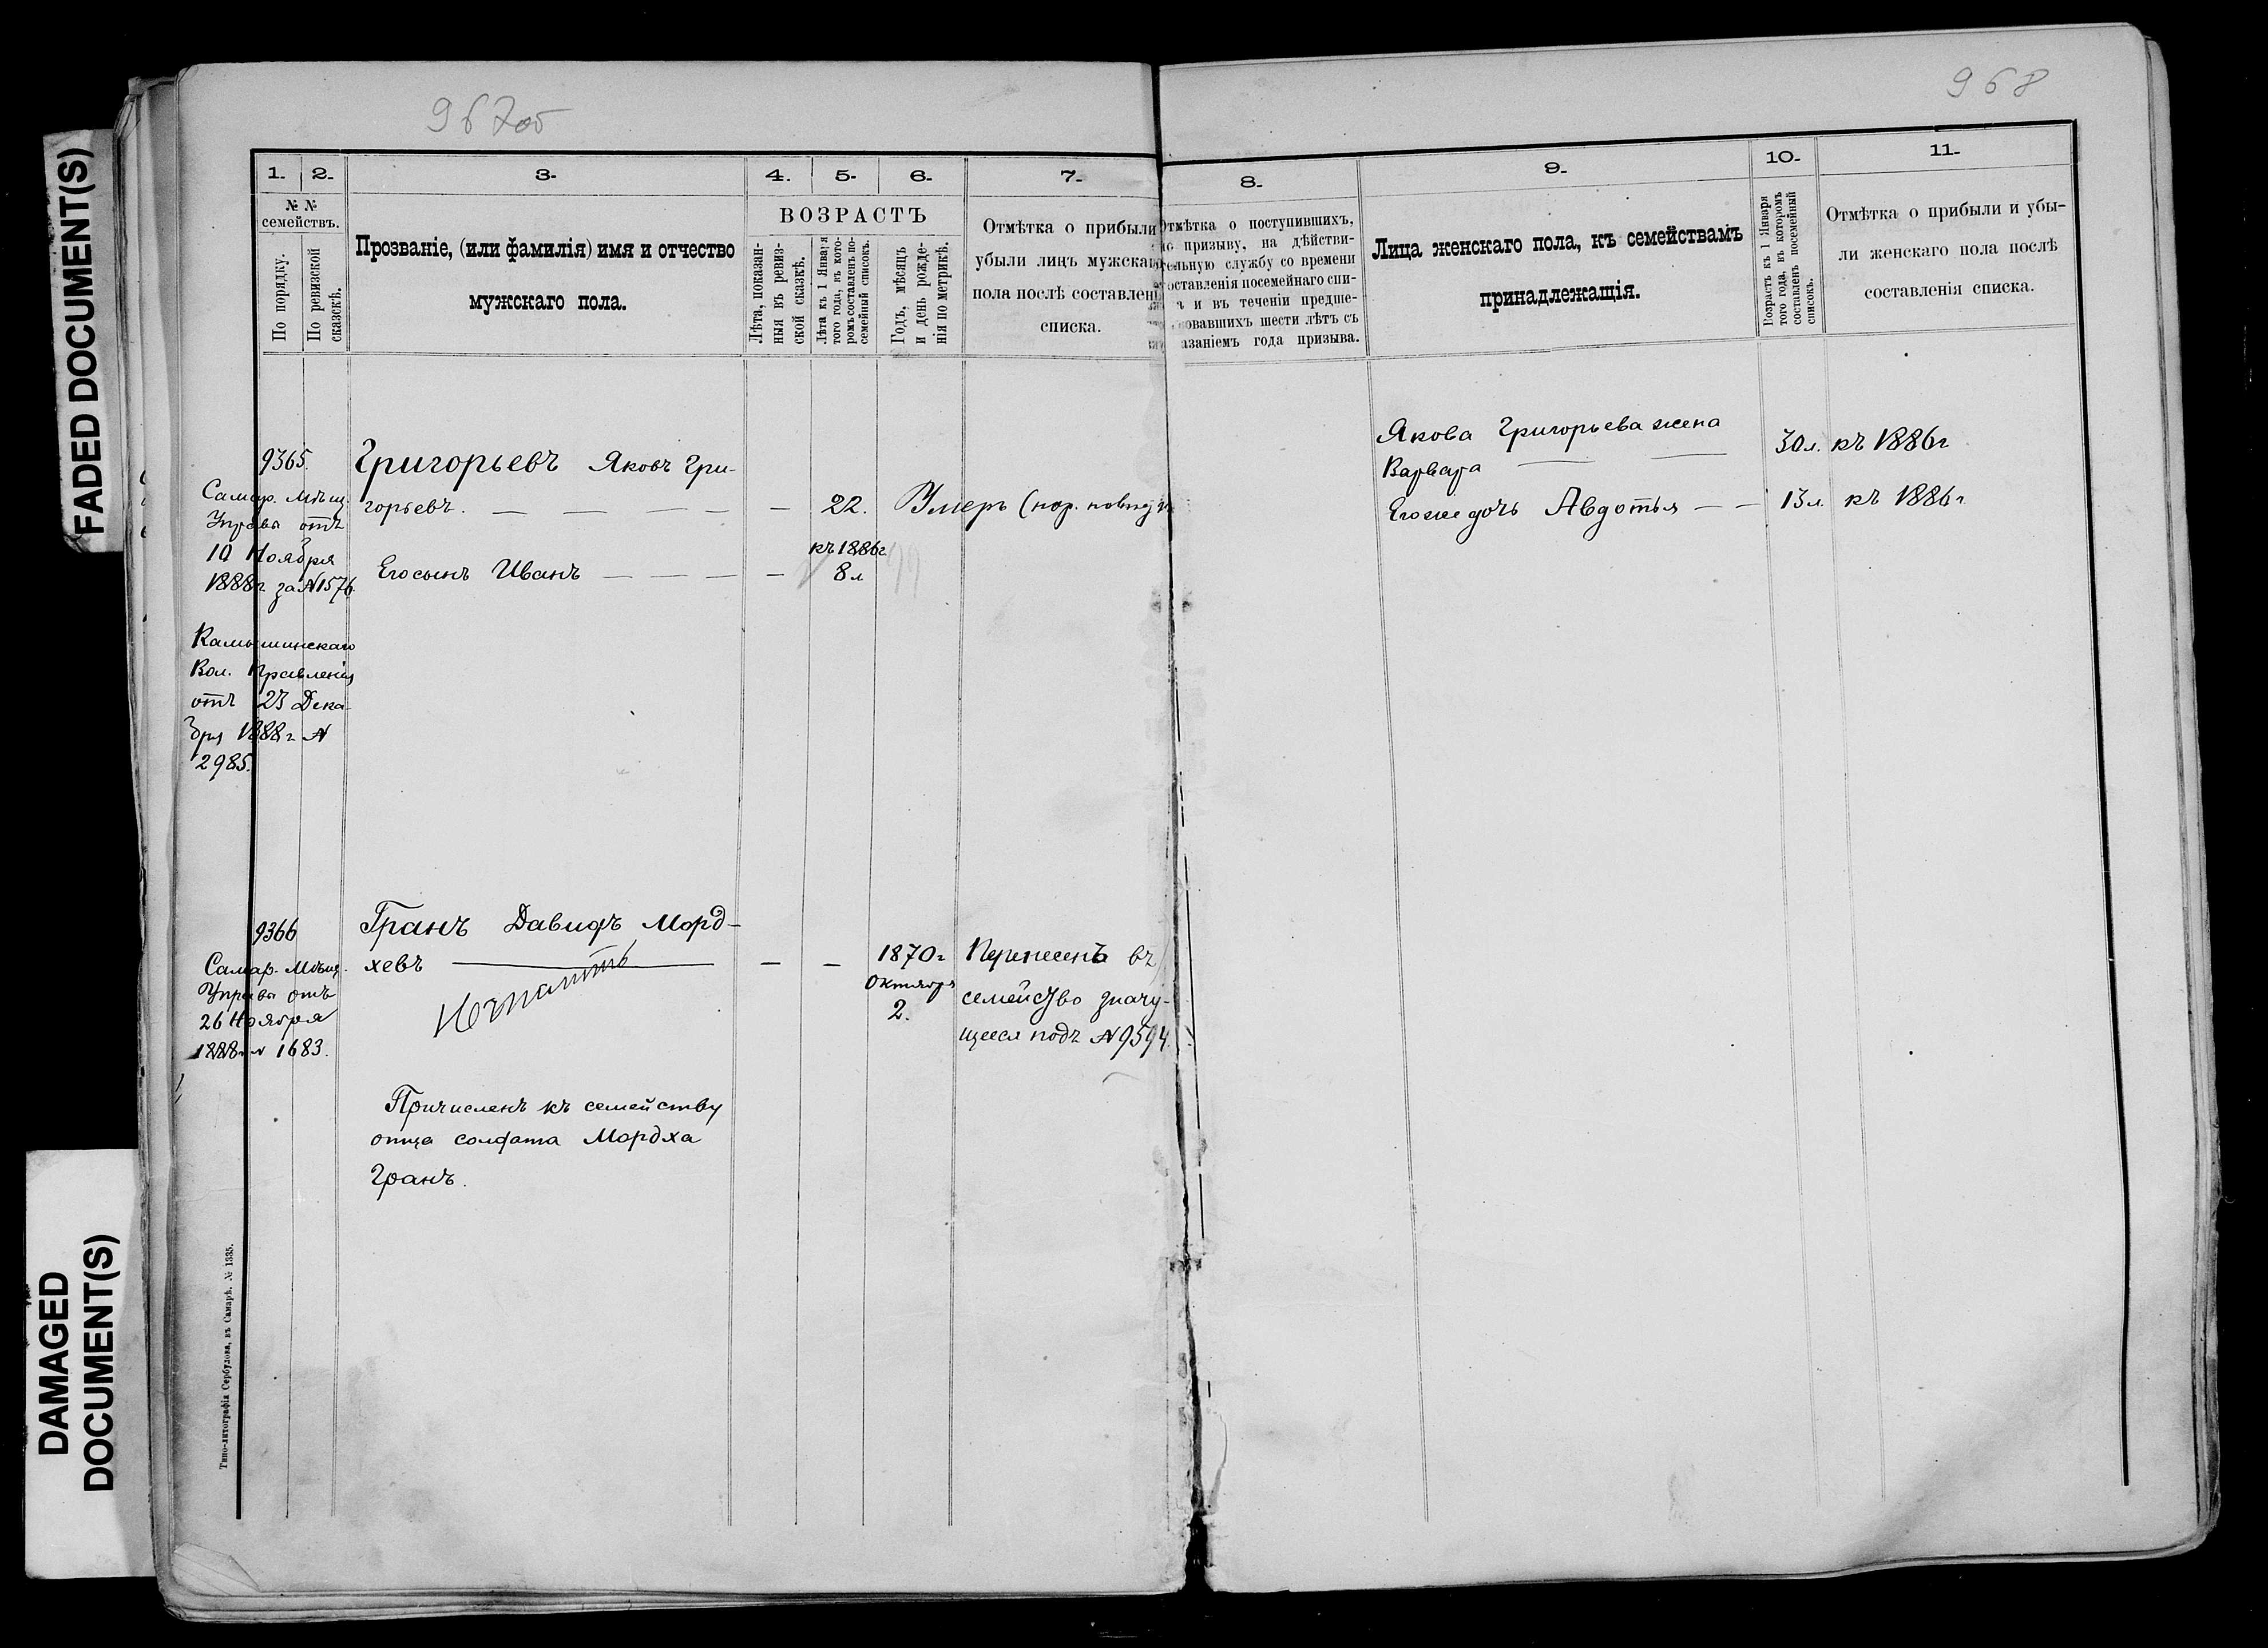 FADED DOCUMENT(S)
DAMAGED
DOCUMENT(S)
967об
968
1.
2.
3.
4.
5.
6.
7.
№ №
семействъ.
По порядку.
По ревизской
сказкѣ.
Прозваніе, (или фамилія) имя и отчество
мужскаго пола.
ВОЗРАСТЪ
Лѣта, показан-
ныя въ ревиз-
ской сказкѣ.
Лѣта къ 1 Января
того года, въ кото-
ромъ составленъ по-
семейный списокъ.
Годъ, мѣсяцъ
и день рожде-
нія по метрикѣ.
Отмѣтка о прибыли
убыли лицъ мужскаго
пола послѣ составлені
списка.
9365.
Самар. Мѣщ.
Управы отъ
10 Ноября
1888г. за №1576
Камышинскаго
Вол. Правленія
отъ 23 Дека-
бря 1888г №
2985.
Григорьевъ Яковъ Гри-
горьевъ. — — — — — 22. Умеръ
къ 1886г
Его сынъ Иванъ — — — — — 8 л
9366
Самар. Мѣщ.
Управы отъ
26 Ноября
1888г № 1683.
Гранъ Давидъ Морд-
хевъ — — —
1870г
Октября
2.
Перенесенъ въ
семейство значу-
щееся подъ №9594.
Причисленъ къ семейству
отца солдата Мордха
Гранъ.
Типо-литографія Сербулова, въ Самарѣ. № 1335.
8.
9.
10.
11.
Отмѣтка о поступившихъ,
по призыву, на дѣйстви-
тельную службу со времени
составленія посемейнаго спи-
а и въ теченіи предше-
вовавшихъ шести лѣтъ съ
азаніемъ года призыва.
Лица женскаго пола, къ семействамъ
принадлежащія.
Возрастъ къ 1 Января
того года, въ которомъ
составленъ посемейный
списокъ.
Отмѣтка о прибыли и убы-
ли женскаго пола послѣ
составленія списка.
Якова Григорьева жена
Варвара — — 30 л. къ 1886г
Его же дочь Авдотья — — 13 л. къ 1886г.